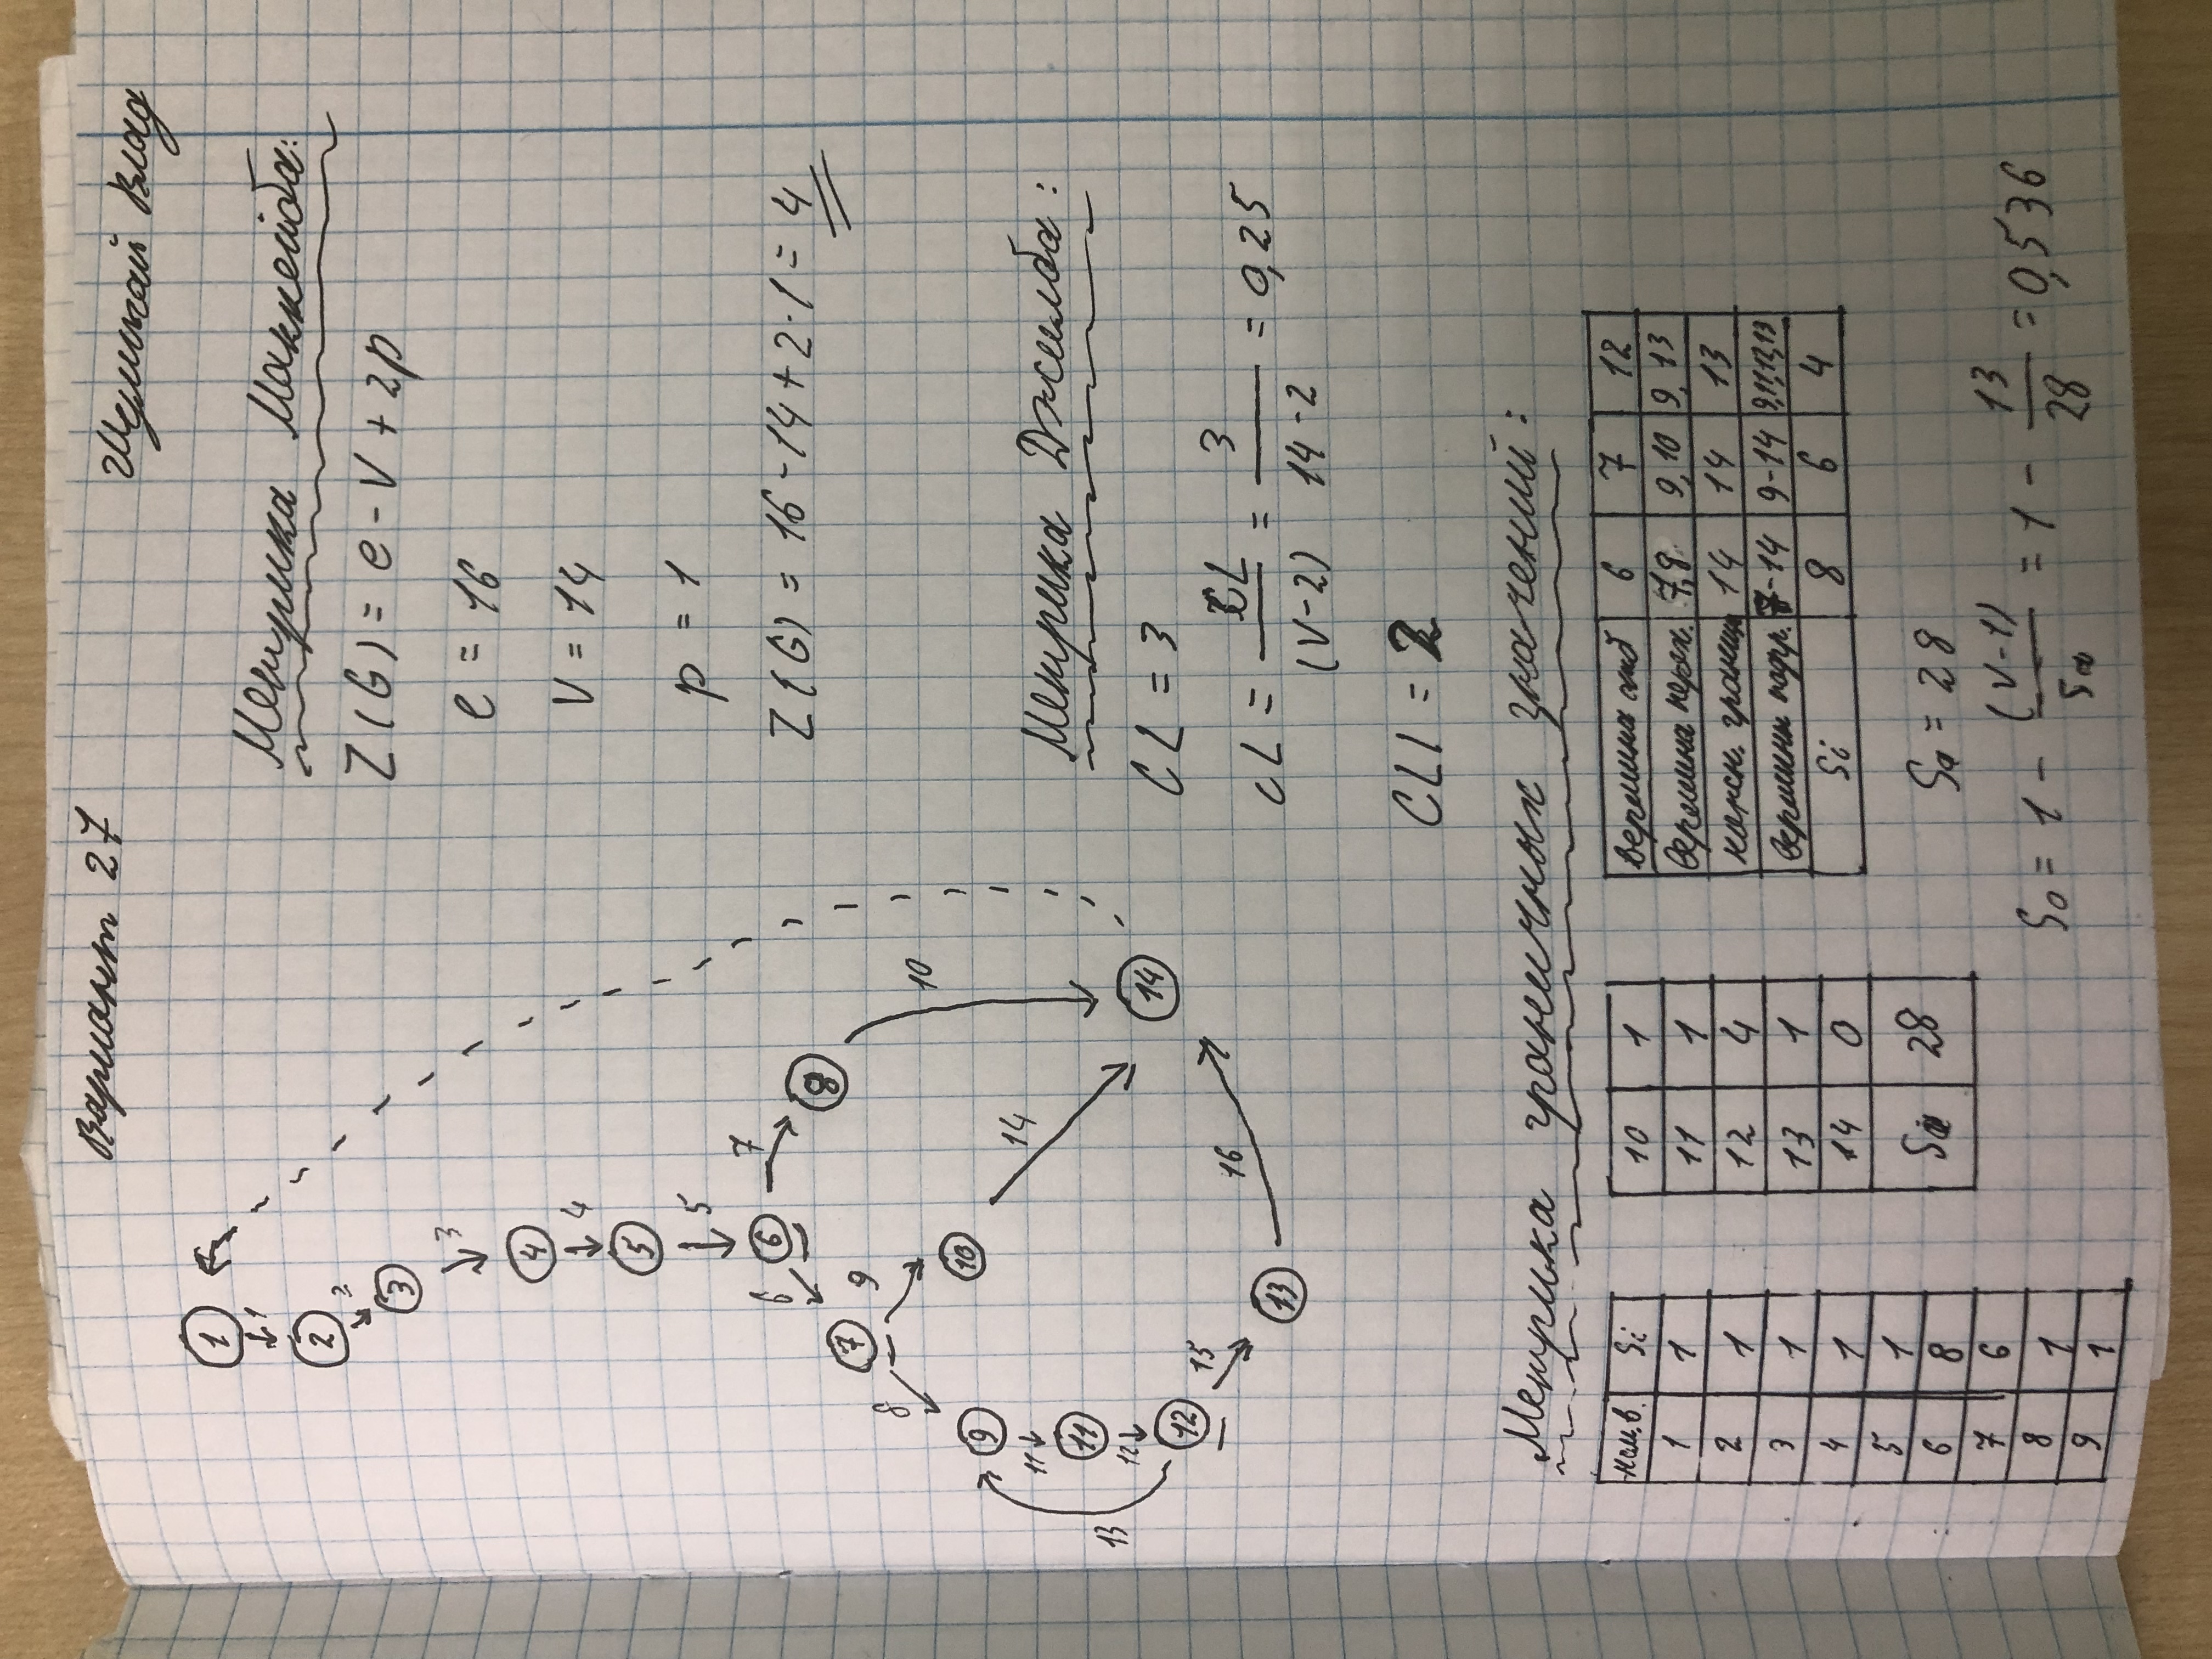 Вариант 27
Влад
1
1
2
2
3
3
4
4
5
5
6
6
7
8
7
8
9
9
10
10
11
11
12
13
12
14
14
15
13
16
Метрика Маккейба:
Z(G) = e - V + 2p
e = 16
V = 14
p = 1
Z(G) = 16 - 14 + 2·1 = 4
Метрика Джилба:
CL = 3
cL = CL / (V-2) = 3 / 14-2 = 0,25
CLI = 2
Метрика граничных значений:
Ном.в. Si
1 1
2 1
3 1
4 1
5 1
6 8
7 6
8 1
9 1
10 1
11 1
12 4
13 1
14 0
Sa 28
Вершина отб 6 7 12
Вершина перех. 7,8 9,10 9,13
нижн. границ 14 14 13
Вершины подгр. 7-14 9-14 9,11,12,13
Si 8 6 4
Sa = 28
So = 1 - (V-1) / Sa = 1 - 13 / 28 = 0,536